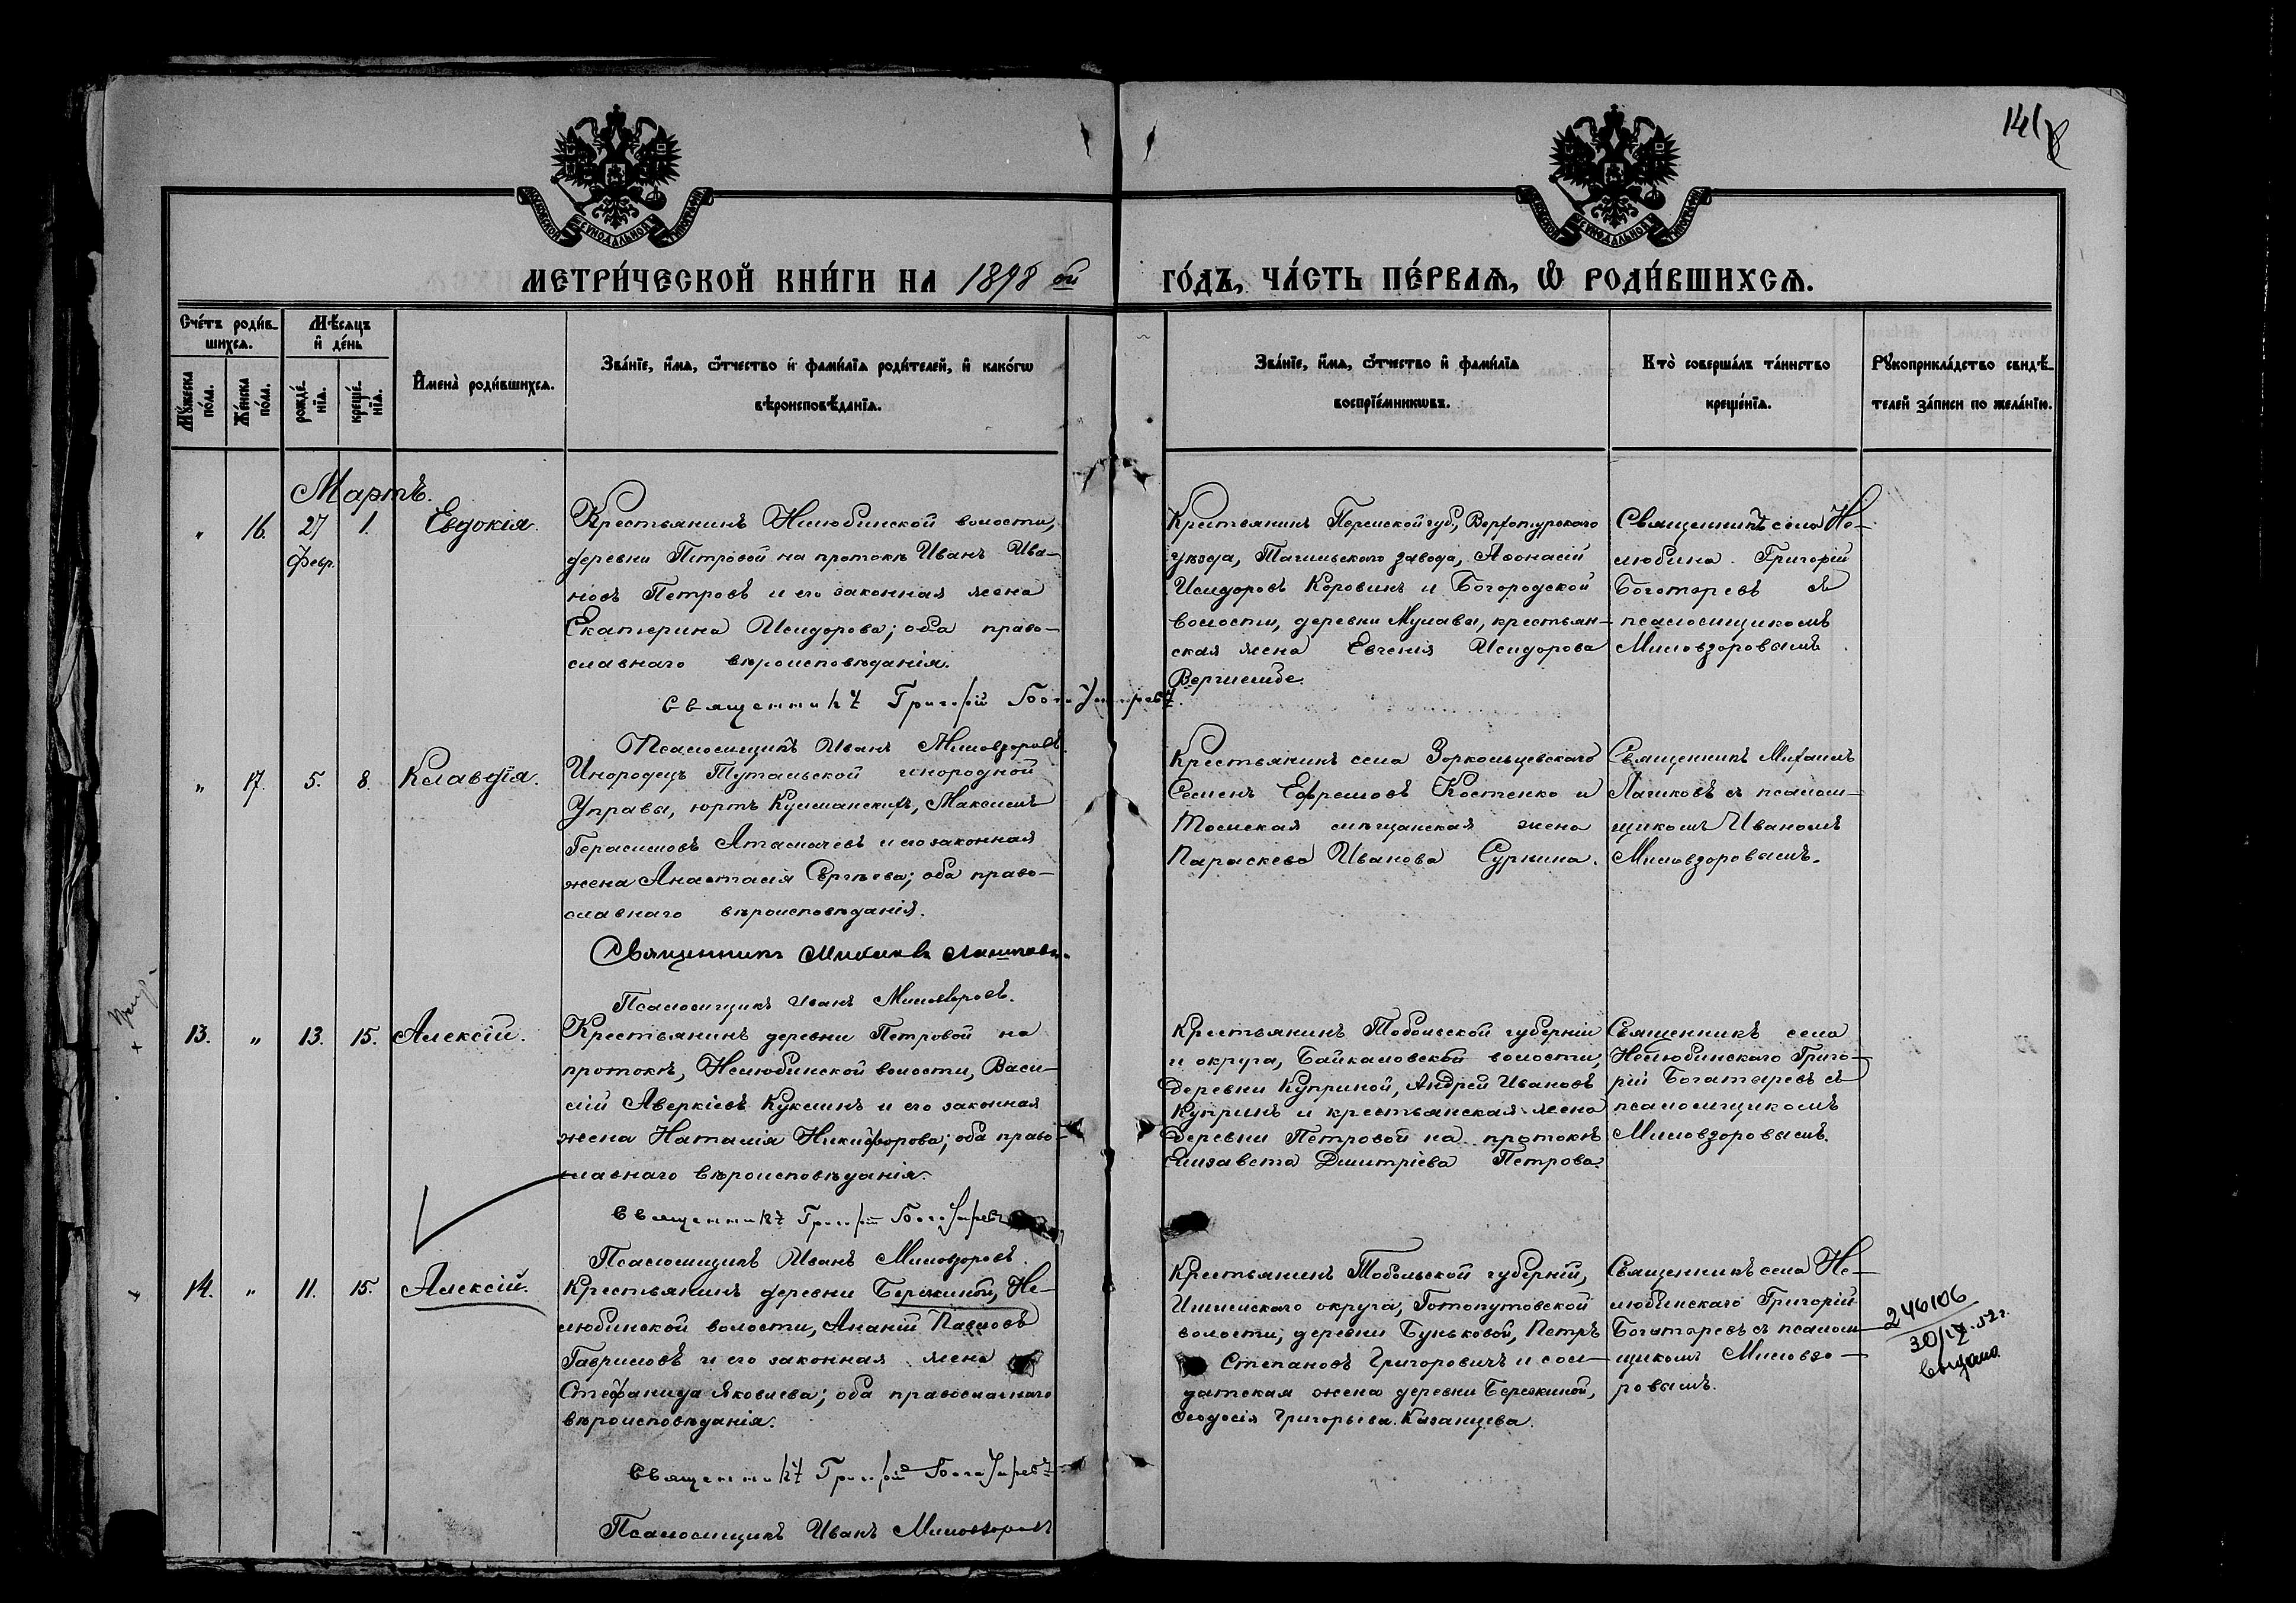 141
МОСКОВСКОЙ СѴНОДАЛЬНОЙ ТИПОГРАФІИ
МОСКОВСКОЙ СѴНОДАЛЬНОЙ ТИПОГРАФІИ
МЕТРИ́ЧЕСКОЙ КНИ́ГИ НА 1898 ой
ГО́ДЪ, ЧА́СТЬ ПЕ́РВАѦ, Ѽ РОДИ́ВШИХСѦ.
Сче́тъ роди́в-
шихсѧ.
Мꙋ́жеска по́ла.
Же́нска по́ла.
Мѣ́сѧцъ
и҆ де́нь
рожде́-
нїѧ.
креще́-
нїѧ.
И҆мена̀ роди́вшихсѧ.
Зва́нїе, и҆́мѧ, ѻ҆́тчество и҆ фами́лїѧ роди́телей, и҆ како́гѡ
вѣроисповѣ́данїѧ.
Зва́нїе, и҆́мѧ, ѻ҆́тчество и҆ фами́лїѧ
воспрїе́мникѡвъ.
Кто̀ соверша́лъ та́инство
креще́нїѧ.
Рꙋкоприкла́дство свидѣ́-
телей за́писи по жела́нїю.
Мартъ.
" 16. 27 1. Евдокія.
Февр.
Крестьянинъ Нелюбинской волости,
деревни Петровой на протокѣ Иванъ Ива-
новъ Петровъ и его законная жена
Екатерина Исидорова; оба право-
славнаго вѣроисповѣданія.
Священникъ Григорій Богатыревъ.
Псаломщикъ Иванъ Миловзоровъ.
Крестьянинъ Пермской губ., Верхотурскаго
уѣзда, Тагильскаго завода, Аѳонасій
Исидоровъ Коровинъ и Богородской
волости, деревни Мулавы, крестьян-
ская жена Евгенія Исидорова
Священникъ села Не-
любина Григорій
Богатыревъ съ
псаломщикомъ
Миловзоровымъ
" 17. 5. 8. Клавдія.
Инородецъ Тутальской инородной
Управы, юртъ Кулманскихъ, Максимъ
Герасимовъ Атаманчевъ и его законная
жена Анастасія Сергѣева; оба право-
славнаго вѣроисповѣданія.
Священникъ Михаилъ
Псаломщикъ Иванъ Миловзоровъ.
Крестьянинъ села Зоркольцевскаго
Семенъ Ефремовъ Костенко и
Томская мѣщанская жена
Параскева Иванова Суркина.
Священникъ Михаилъ
съ псалом-
щикомъ Иваномъ
Миловзоровымъ.
13. " 13. 15. Алексій.
Крестьянинъ деревни Петровой на
протокѣ, Нелюбинской волости, Васи-
лій Аверкіевъ Куклинъ и его законная
жена Наталія Никифорова; оба право-
славнаго вѣроисповѣданія.
Священникъ Григорій Богатыревъ
Псаломщикъ Иванъ Миловзоровъ.
Крестьянинъ Тобольской губерніи
и округа, Байкаловской волости,
деревни Куприной, Андрей Ивановъ
Купринъ и крестьянская жена
деревни Петровой на протокѣ
Елизавета Дмитріева Петрова.
Священникъ села
Нелюбинскаго Григо-
рій Богатыревъ съ
псаломщикомъ
Миловзоровымъ.
14. " 11. 15. Алексій.
Крестьянинъ деревни Берёжкиной, Не-
любинской волости, Ананій Павловъ
Гавриловъ и его законная жена
Стефанида Яковлева; оба православнаго
вѣроисповѣданія.
Священникъ Григорій Богатыревъ
Псаломщикъ Иванъ Миловзоровъ
Крестьянинъ Тобольской губерніи,
Ишимскаго округа, Готопутовской
волости, деревни Буньковой, Петръ
Степановъ Григоровичъ и сол-
датская жена деревни Бережкиной,
Ѳеодосія Григорьева Казанцева.
Священникъ села Не-
любинскаго Григорій
Богатыревъ съ псалом-
щикомъ Миловзо-
ровымъ.
246106
30/IV.52г.
выдано